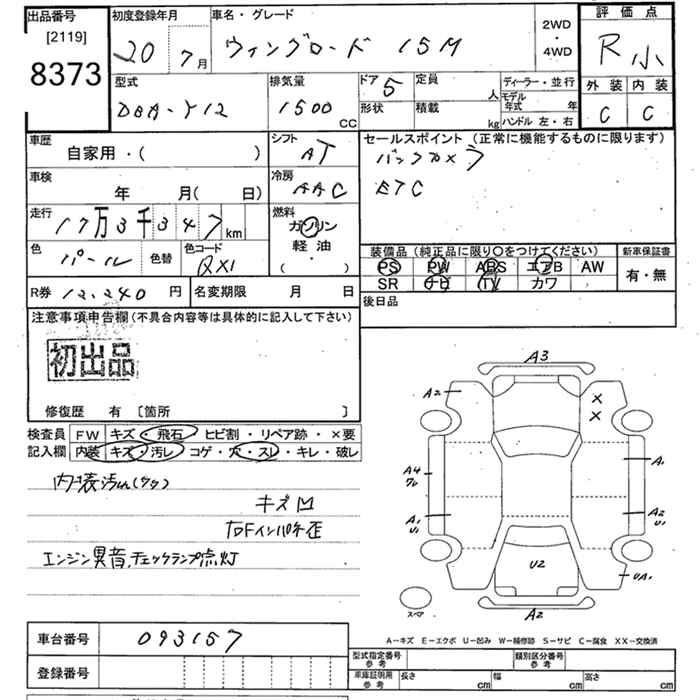 出品番号
[2119]
8373
初度登録年月
20 7月
車名・グレード
ウィングロード 15M
2WD
・
4WD
評価点
R小
外装 内装
C C
型式
DBA-Y12
排気量
1500 CC
ドア 5
形状
定員 人
積載 kg
ディーラー・並行
モデル年式 年
ハンドル 左・右
車歴
自家用・( )
シフト
AT
セールスポイント (正常に機能するものに限ります)
バックカメラ
ETC
車検
年 月( 日)
冷房
AAC
走行
17万3千347km
燃料
ガソリン
軽油
( )
色
パール
色替
色コード
QX1
装備品(純正品に限り○をつけてください)
PS PW ABS エアB AW
SR ナビ TV カワ
新車保証書
有・無
R券 12,240 円
名変期限 月 日
後日品
注意事項申告欄(不具合内容等は具体的に記入して下さい)
初出品
修復歴 有 [箇所 ]
検査員記入欄
FW キズ・飛石・ヒビ割・リペア跡・×要
内装 キズ・汚レ・コゲ・穴・スレ・キレ・破レ
キズ凹
右Fインパネ歪
エンジン異音、チェックランプ点灯
A3
A2
X
X
A4
ワレ
A1
A1
U1
A2
U1
U2
UA1
スペア
A2
A-キズ E-エクボ U-凹み W-補修跡 S-サビ C-腐食 XX-交換済
車台番号 093157
登録番号
型式指定番号
参考
類別区分番号
参考
車庫証明用
参考
長さ cm 幅 cm 高さ cm